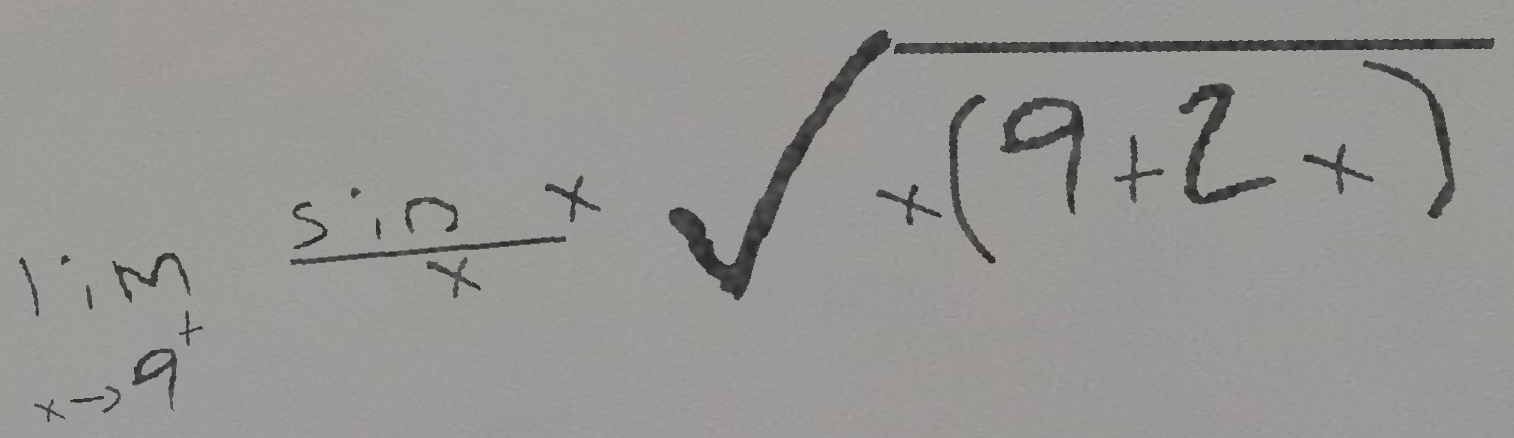 lim x→9⁺ sin x / x √(x(9+2x))